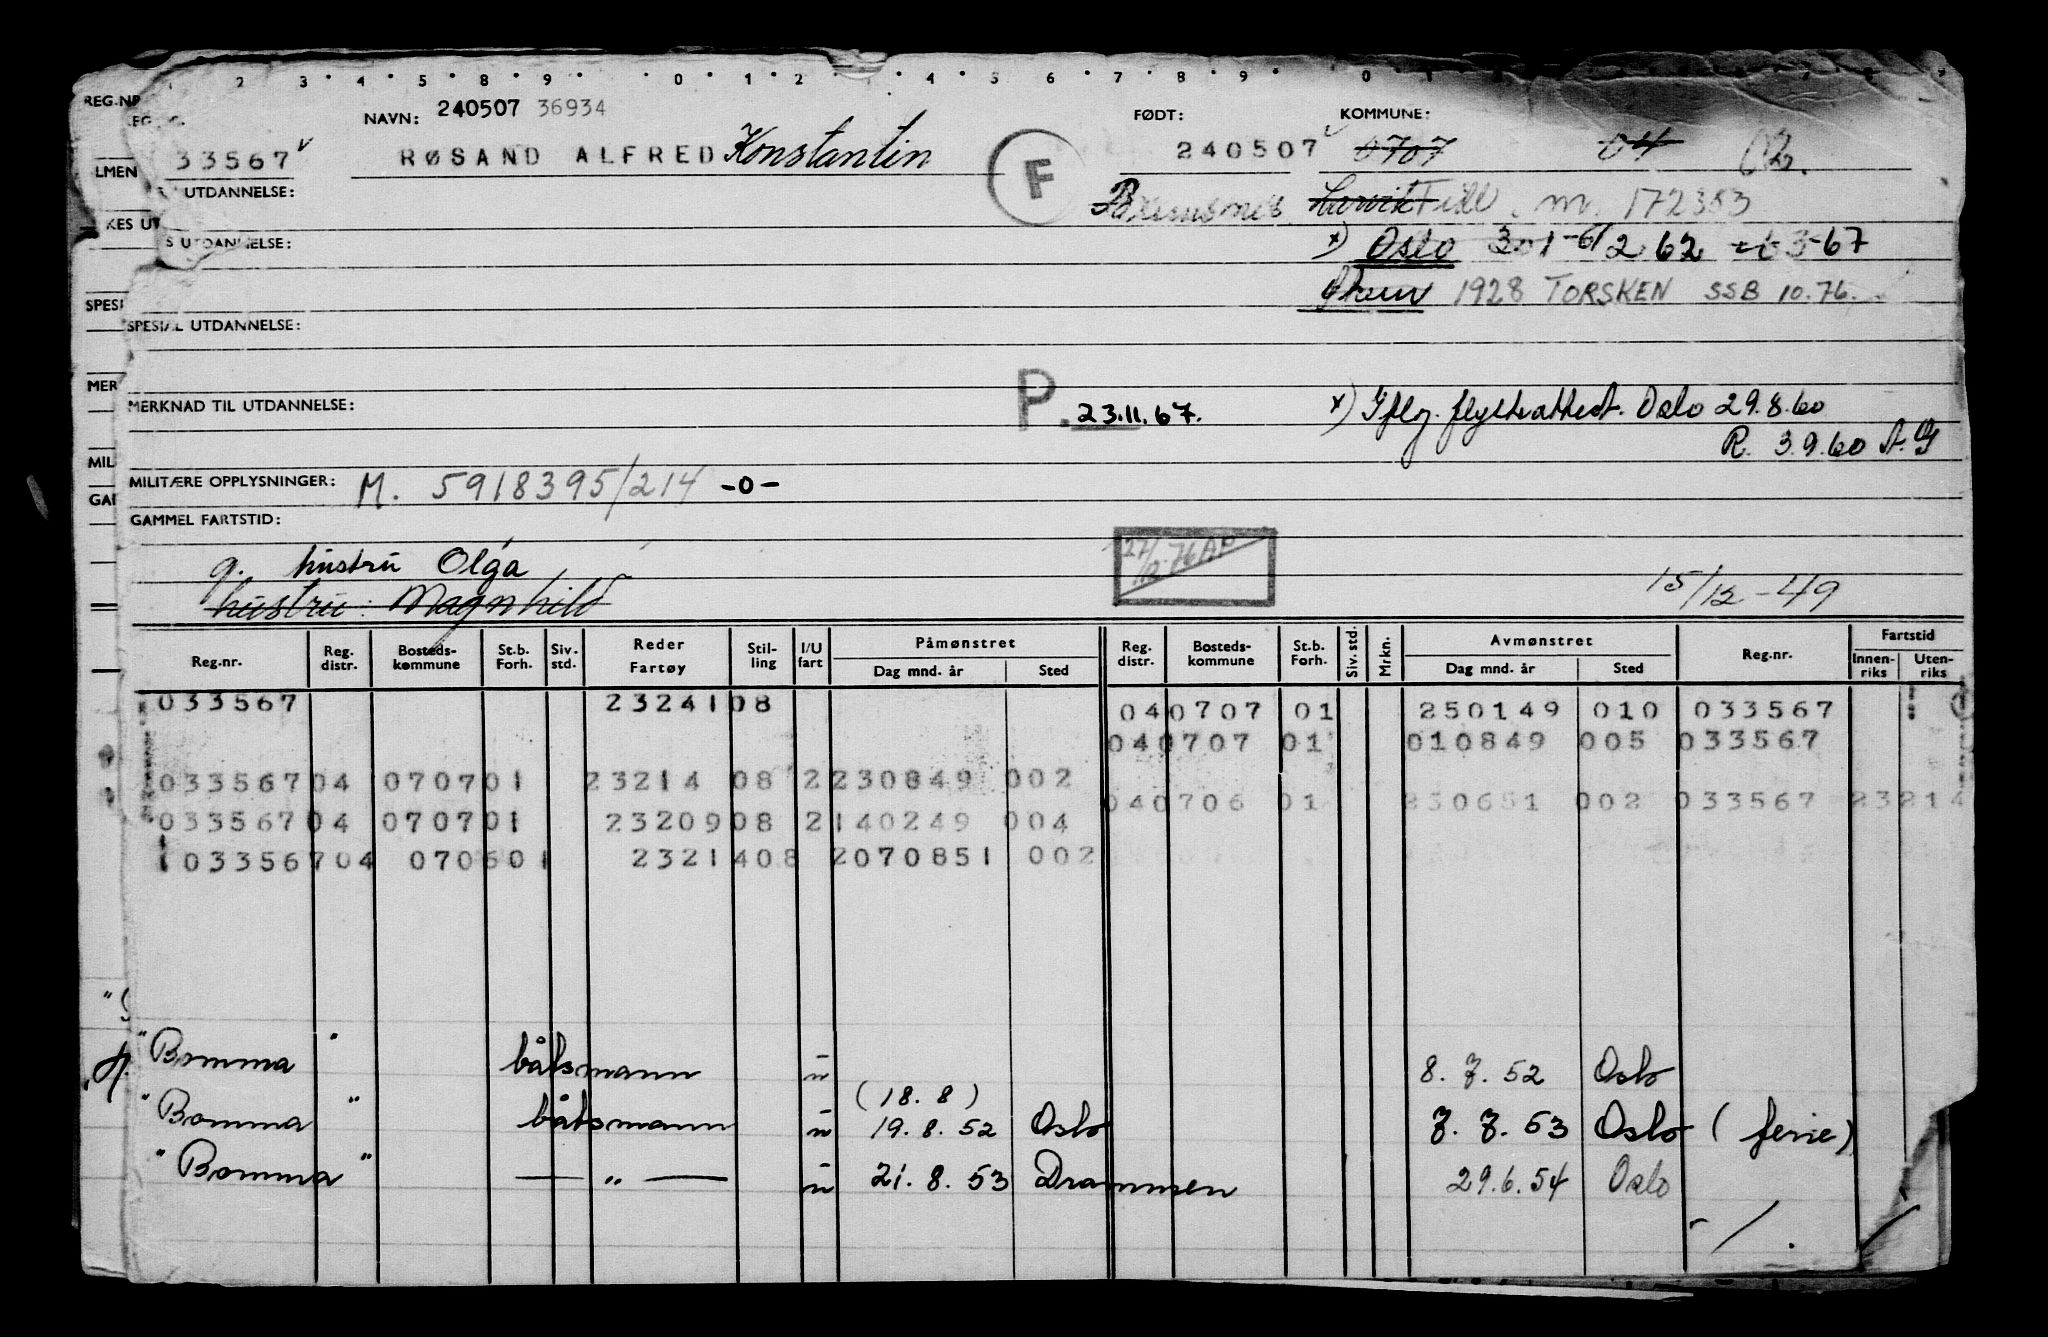 2 3 4 5 6 8 9 0 1 2 4 5 6 7 8 9 0
REG.NR
NAVN: 240507 36934 FØDT: KOMMUNE:
33567 RØSAND ALFRED Konstantin F 240507 0707 04 02.
LMEN UTDANNELSE: Larvik m. 172353
KES UT S UTDANNELSE: x) Oslo 62 67
1928 TORSKEN SSB 10.76.
SPESI
SPESIAL UTDANNELSE:
MER
MERKNAD TIL UTDANNELSE: P. 23.11.67. x) Iflg. flytteattest. Oslo 29.8.60
R. 3.9.60 A.G
MIL
MILITÆRE OPPLYSNINGER: M. 5918395/214 -o-
GAM
GAMMEL FARTSTID:
g. hustru Olga 27/12-76
hustru: Magnhild 15/12-49
Reg.nr. Reg. distr. Bosteds-kommune St.b. Forh. Siv. std. Reder Fartøy Stil-ling I/U fart Påmønstret Dag mnd. år Sted Reg. distr. Bosteds-kommune St.b. Forh. Siv. std. Mrkn. Avmønstret Dag mnd. år Sted Reg.nr. Fartstid Innen-riks Uten-riks
033567 23241 08 04 0707 01 250149 010 033567
04 0707 01 010849 005 033567
033567 04 0707 01 23214 08 2 230849 002
04 0706 01 250651 002 033567 23214
033567 04 0707 01 23209 08 2 140249 004
033567 04 0706 01 23214 08 2 070851 002
"Bomma" båtsmann u 8.7.52 Oslo
(18.8)
"Bomma" båtsmann u 19.8.52 Oslo 7.7.53 Oslo (ferie)
"Bomma" — " — u 21.8.53 Drammen 29.6.54 Oslo